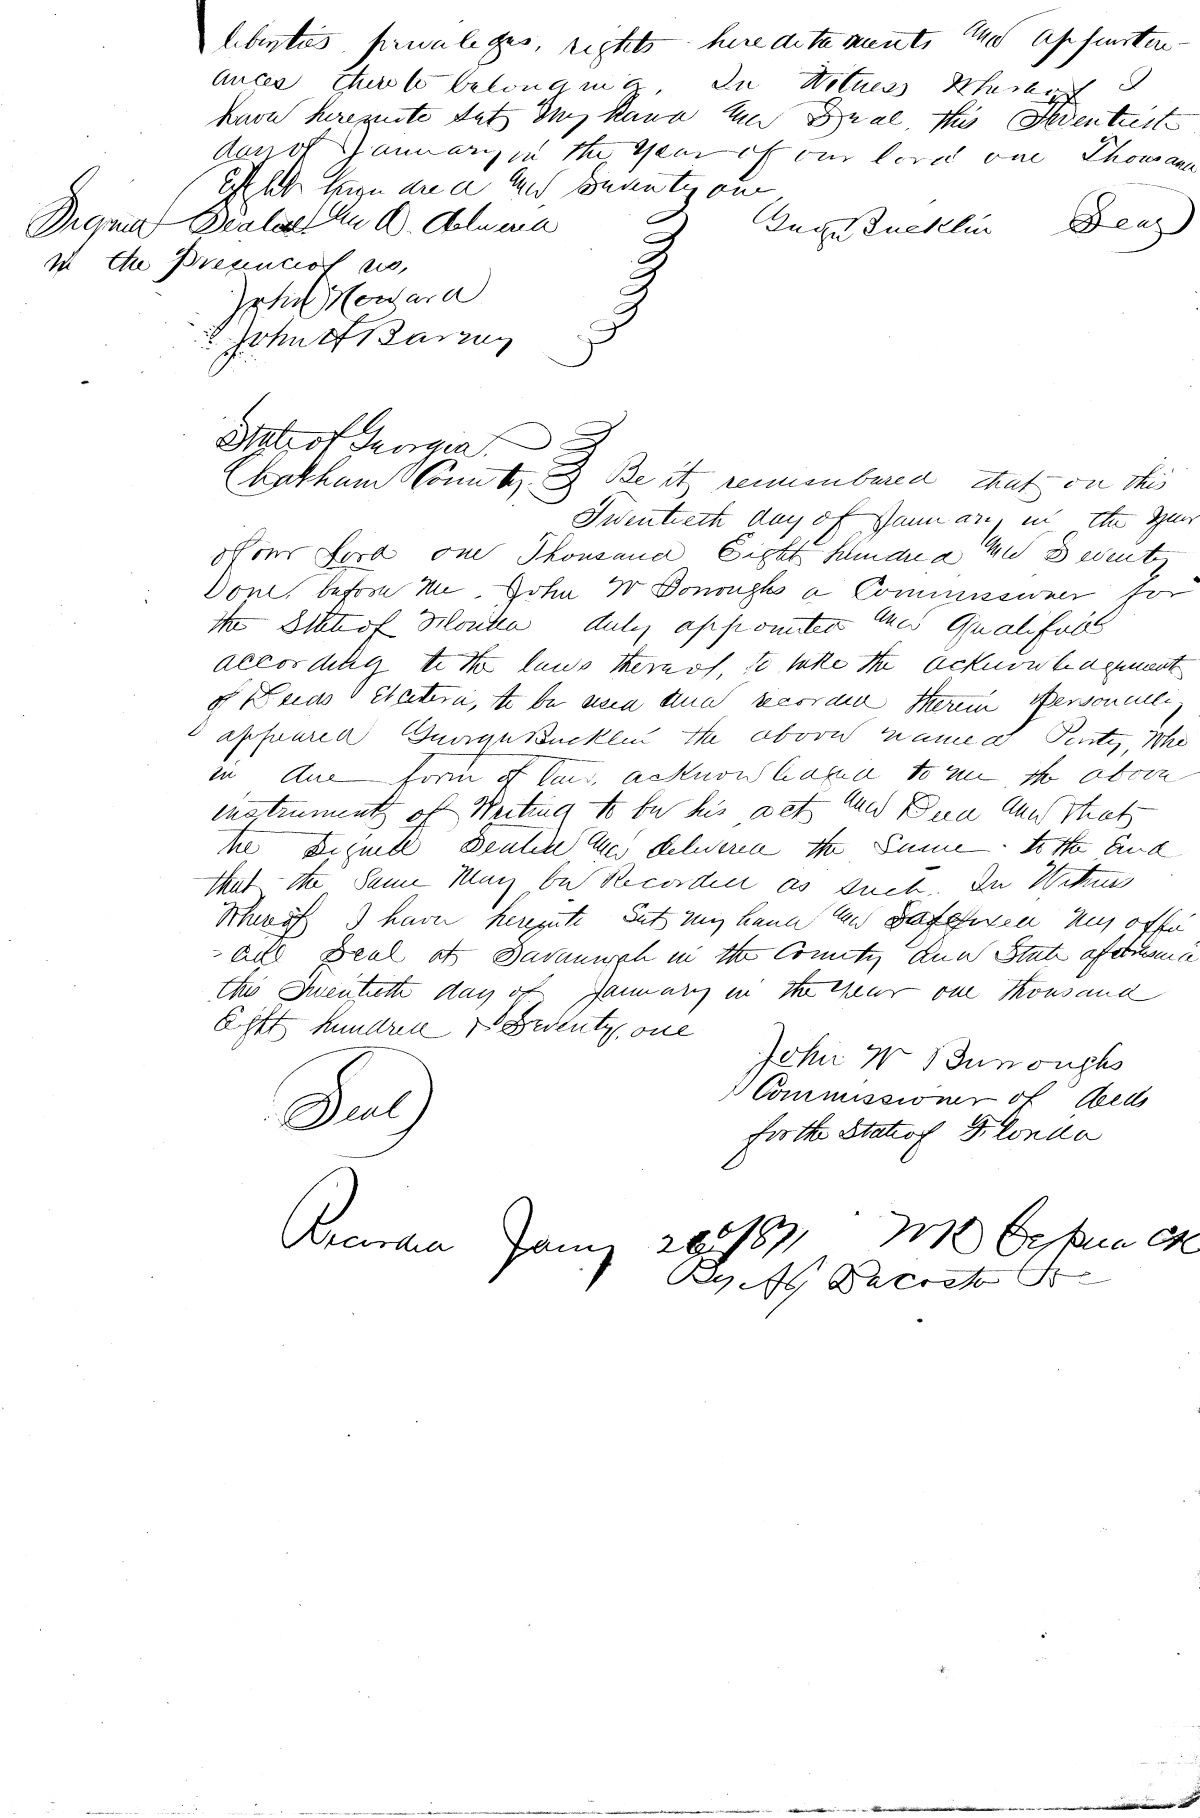 liberties privaleges, rights hereditaments and appurten-
ances thereto belonging. In Witness Whereof I
have hereunto set my hand and Seal, this Twentieth
day of January in the year of our lord one Thousand
Eight hundred and Seventy one
Signed Sealed and D. delivered George Bucklin Seal
in the Presence of us,
John Howard
John A Barney
State of Georgia
Chatham County Be it remembered that on this
Twentieth day of January in the year
of our Lord one Thousand Eight hundred and Seventy
one, before me. John W Borroughs a Commissioner for
the State of Florida duly appointed and Qualified
according to the laws thereof, to take the acknowledgement
of Deeds Etcetera, to be used and recorded therein Personally
appeared George Bucklin the above named Party, Who
in due form of law, acknowledged to me the above
instrument of Writing to be his act and Deed and that
he Signed Sealed and delivered the Same to the End
that the Same May be Recorded as such. In Witness
Whereof I have hereunto Set my hand and affixed my offi
-cial Seal at Savannah in the County and State aforesaid
this Twentieth day of January in the year one thousand
Eight hundred & Seventy one
John W Burroughs
Seal Commissioner of deeds
for the State of Florida
Recorded Jany 26 1871 Clk
By A Dacosta